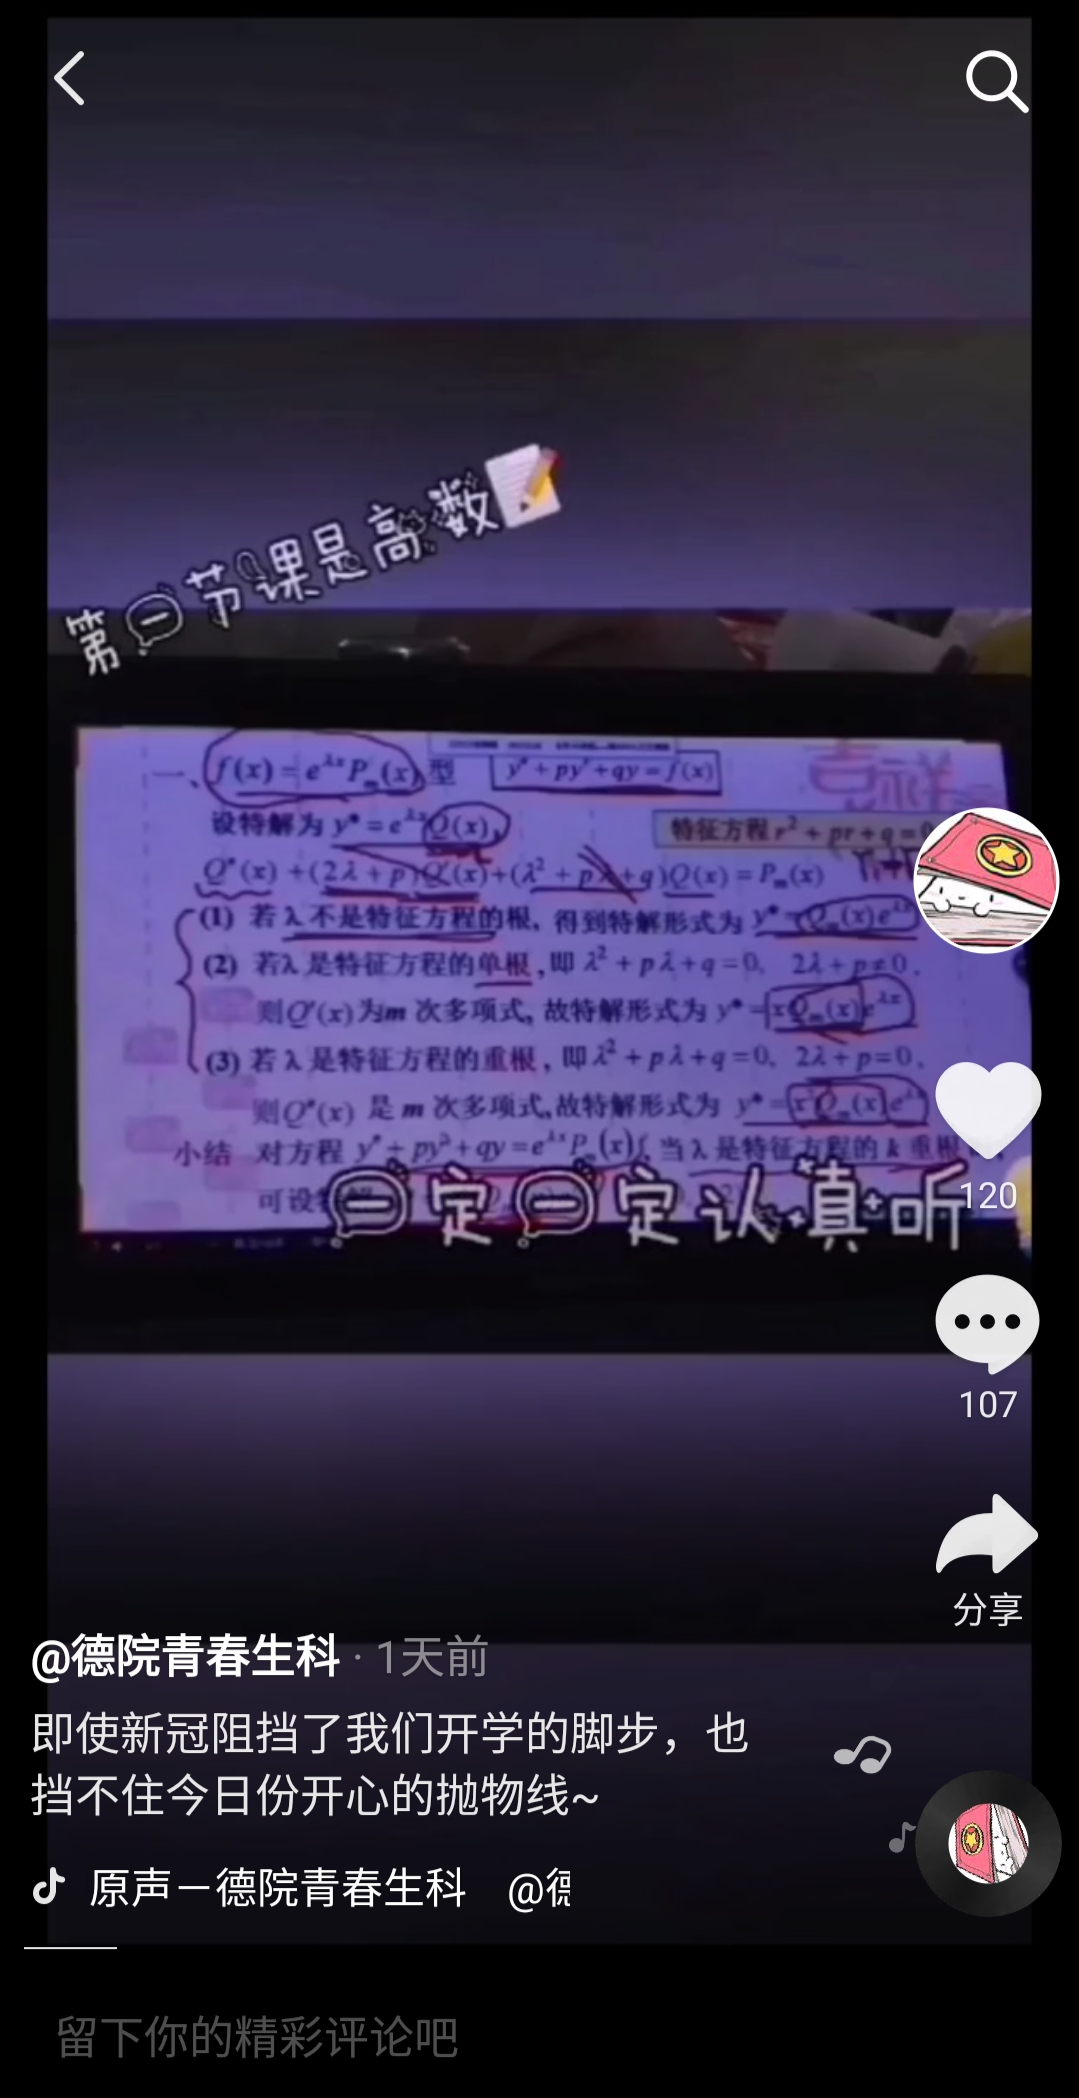 第一节课是高数
一、f(x) = e^{λx}P_m(x) 型 y″+py′+qy=f(x)
吉祥
设特解为 y*=e^{λx}Q(x),
特征方程 r²+pr+q=0
Q″(x)+(2λ+p)Q′(x)+(λ²+pλ+q)Q(x)=P_m(x)
(1) 若 λ 不是特征方程的根, 得到特解形式为 y*=Q_m(x)e^{λx}
(2) 若 λ 是特征方程的单根, 即 λ²+pλ+q=0, 2λ+p≠0,
则Q′(x)为m 次多项式, 故特解形式为 y*=xQ_m(x)e^{λx}
(3) 若 λ 是特征方程的重根, 即 λ²+pλ+q=0, 2λ+p=0,
则Q″(x) 是 m 次多项式,故特解形式为 y*=x²Q_m(x)e^{λx}
小结 对方程 y″+py′+qy=e^{λx}P_m(x), 当 λ 是特征方程的 k 重根
可设
一定一定认真听
120
107
分享
@德院青春生科 · 1天前
即使新冠阻挡了我们开学的脚步，也
挡不住今日份开心的抛物线~
原声－德院青春生科 @德
留下你的精彩评论吧